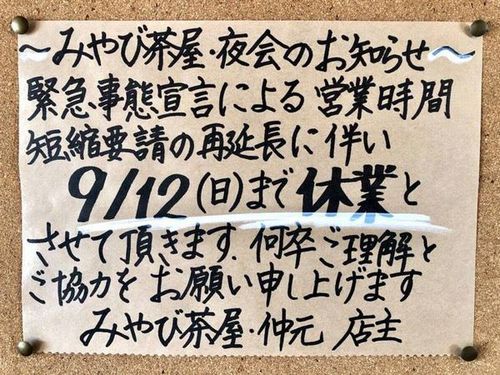 ～みやび茶屋・夜会のお知らせ～
緊急事態宣言による営業時間
短縮要請の再延長に伴い
9/12(日)まで休業と
させて頂きます.何卒ご理解と
ご協力をお願い申し上げます
みやび茶屋・仲元 店主